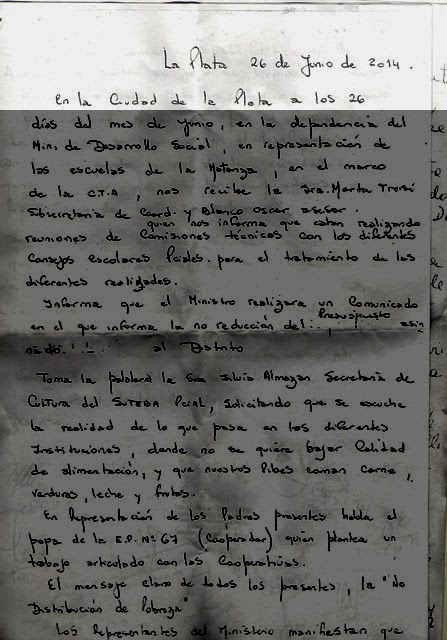 La Plata 26 de Junio de 2014.
En la Ciudad de la Plata a los 26
días del mes de Junio, en la dependencia del
Mini. de Desarrollo Social, en representación de
las escuelas de la Matanza, en el marco
de la C.T.A, nos recibe la Sra. Marta
Subsecretaria de Coord. y Blanco Oscar asesor.
quien nos informa que estan realizando
reuniones de Comisiones técnicas con los diferentes
Consejos escolares para el tratamiento de las
diferentes realidades.
Informa que el Ministro realizara un Comunicado
en el que informa la no reducción del Presupuesto asig
nado al Distrito
Toma la palabra la Sra Silvia Almazan Secretaria de
Cultura del SUTEBA Pcial, solicitando que se escuche
la realidad de lo que pasa en las diferentes
Instituciones, donde no se quiere bajar Calidad
de alimentación, y que nuestros Pibes coman carne,
verduras, leche y frutas.
En Representación de los Padres presentes habla el
papa de la E.P. Nº 67 (Cooperador) quien plantea un
trabajo articulado con las Cooperativas.
El mensaje claro de todos los presentes, la "No
Distribución de Pobreza"
Los Representantes del Ministerio manifiestan que